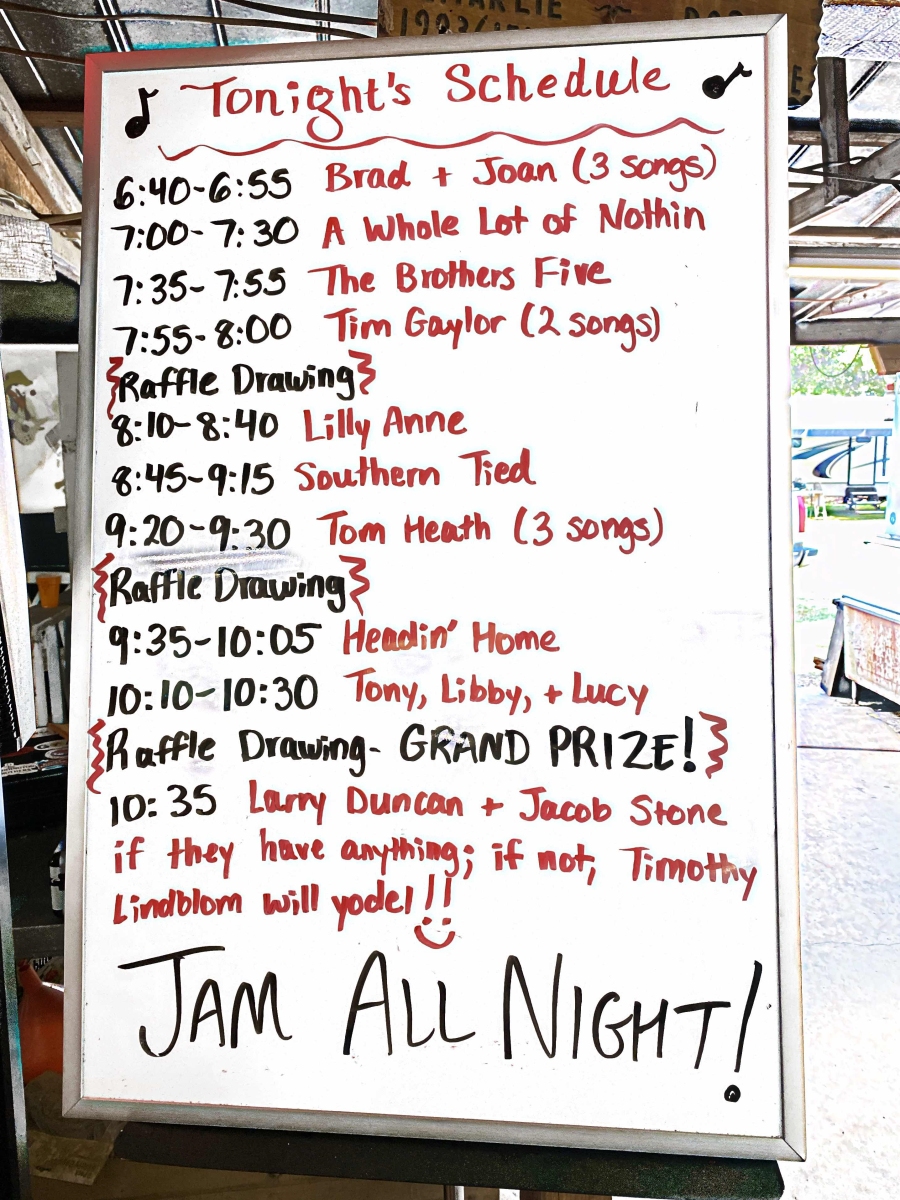 Tonight's Schedule
6:40-6:55 Brad + Joan (3 songs)
7:00-7:30 A Whole Lot of Nothin
7:35-7:55 The Brothers Five
7:55-8:00 Tim Gaylor (2 songs)
Raffle Drawing
8:10-8:40 Lilly Anne
8:45-9:15 Southern Tied
9:20-9:30 Tom Heath (3 songs)
Raffle Drawing
9:35-10:05 Headin' Home
10:10-10:30 Tony, Libby, + Lucy
Raffle Drawing- GRAND PRIZE!
10:35 Larry Duncan + Jacob Stone
if they have anything; if not, Timothy
Lindblom will yodel!!
JAM ALL NIGHT!